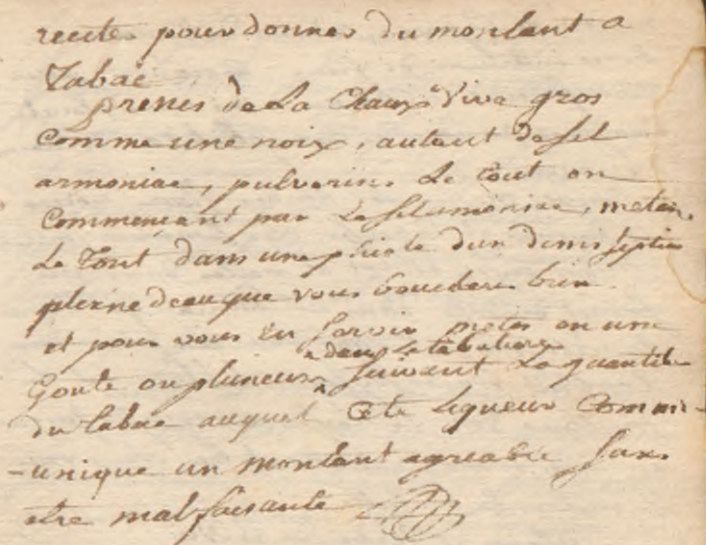 recete pour donner du montant a
Tabac
prenes de La Chaux Vive gros
comme une noix, autant de sel
armoniac, pulverises Le tout en
Commençant par Le sel armoniac, metes
Le Tout dans une phiole d'un demi septier
pleine deau que vous boucheres bien
et pour vous en servir metes en une
dans La tabatiere
Goute ou plusieurs suivent La quantité
du tabac auquel Cete liqueur Commu-
-unique un montant agreable sans
etre malfaisante